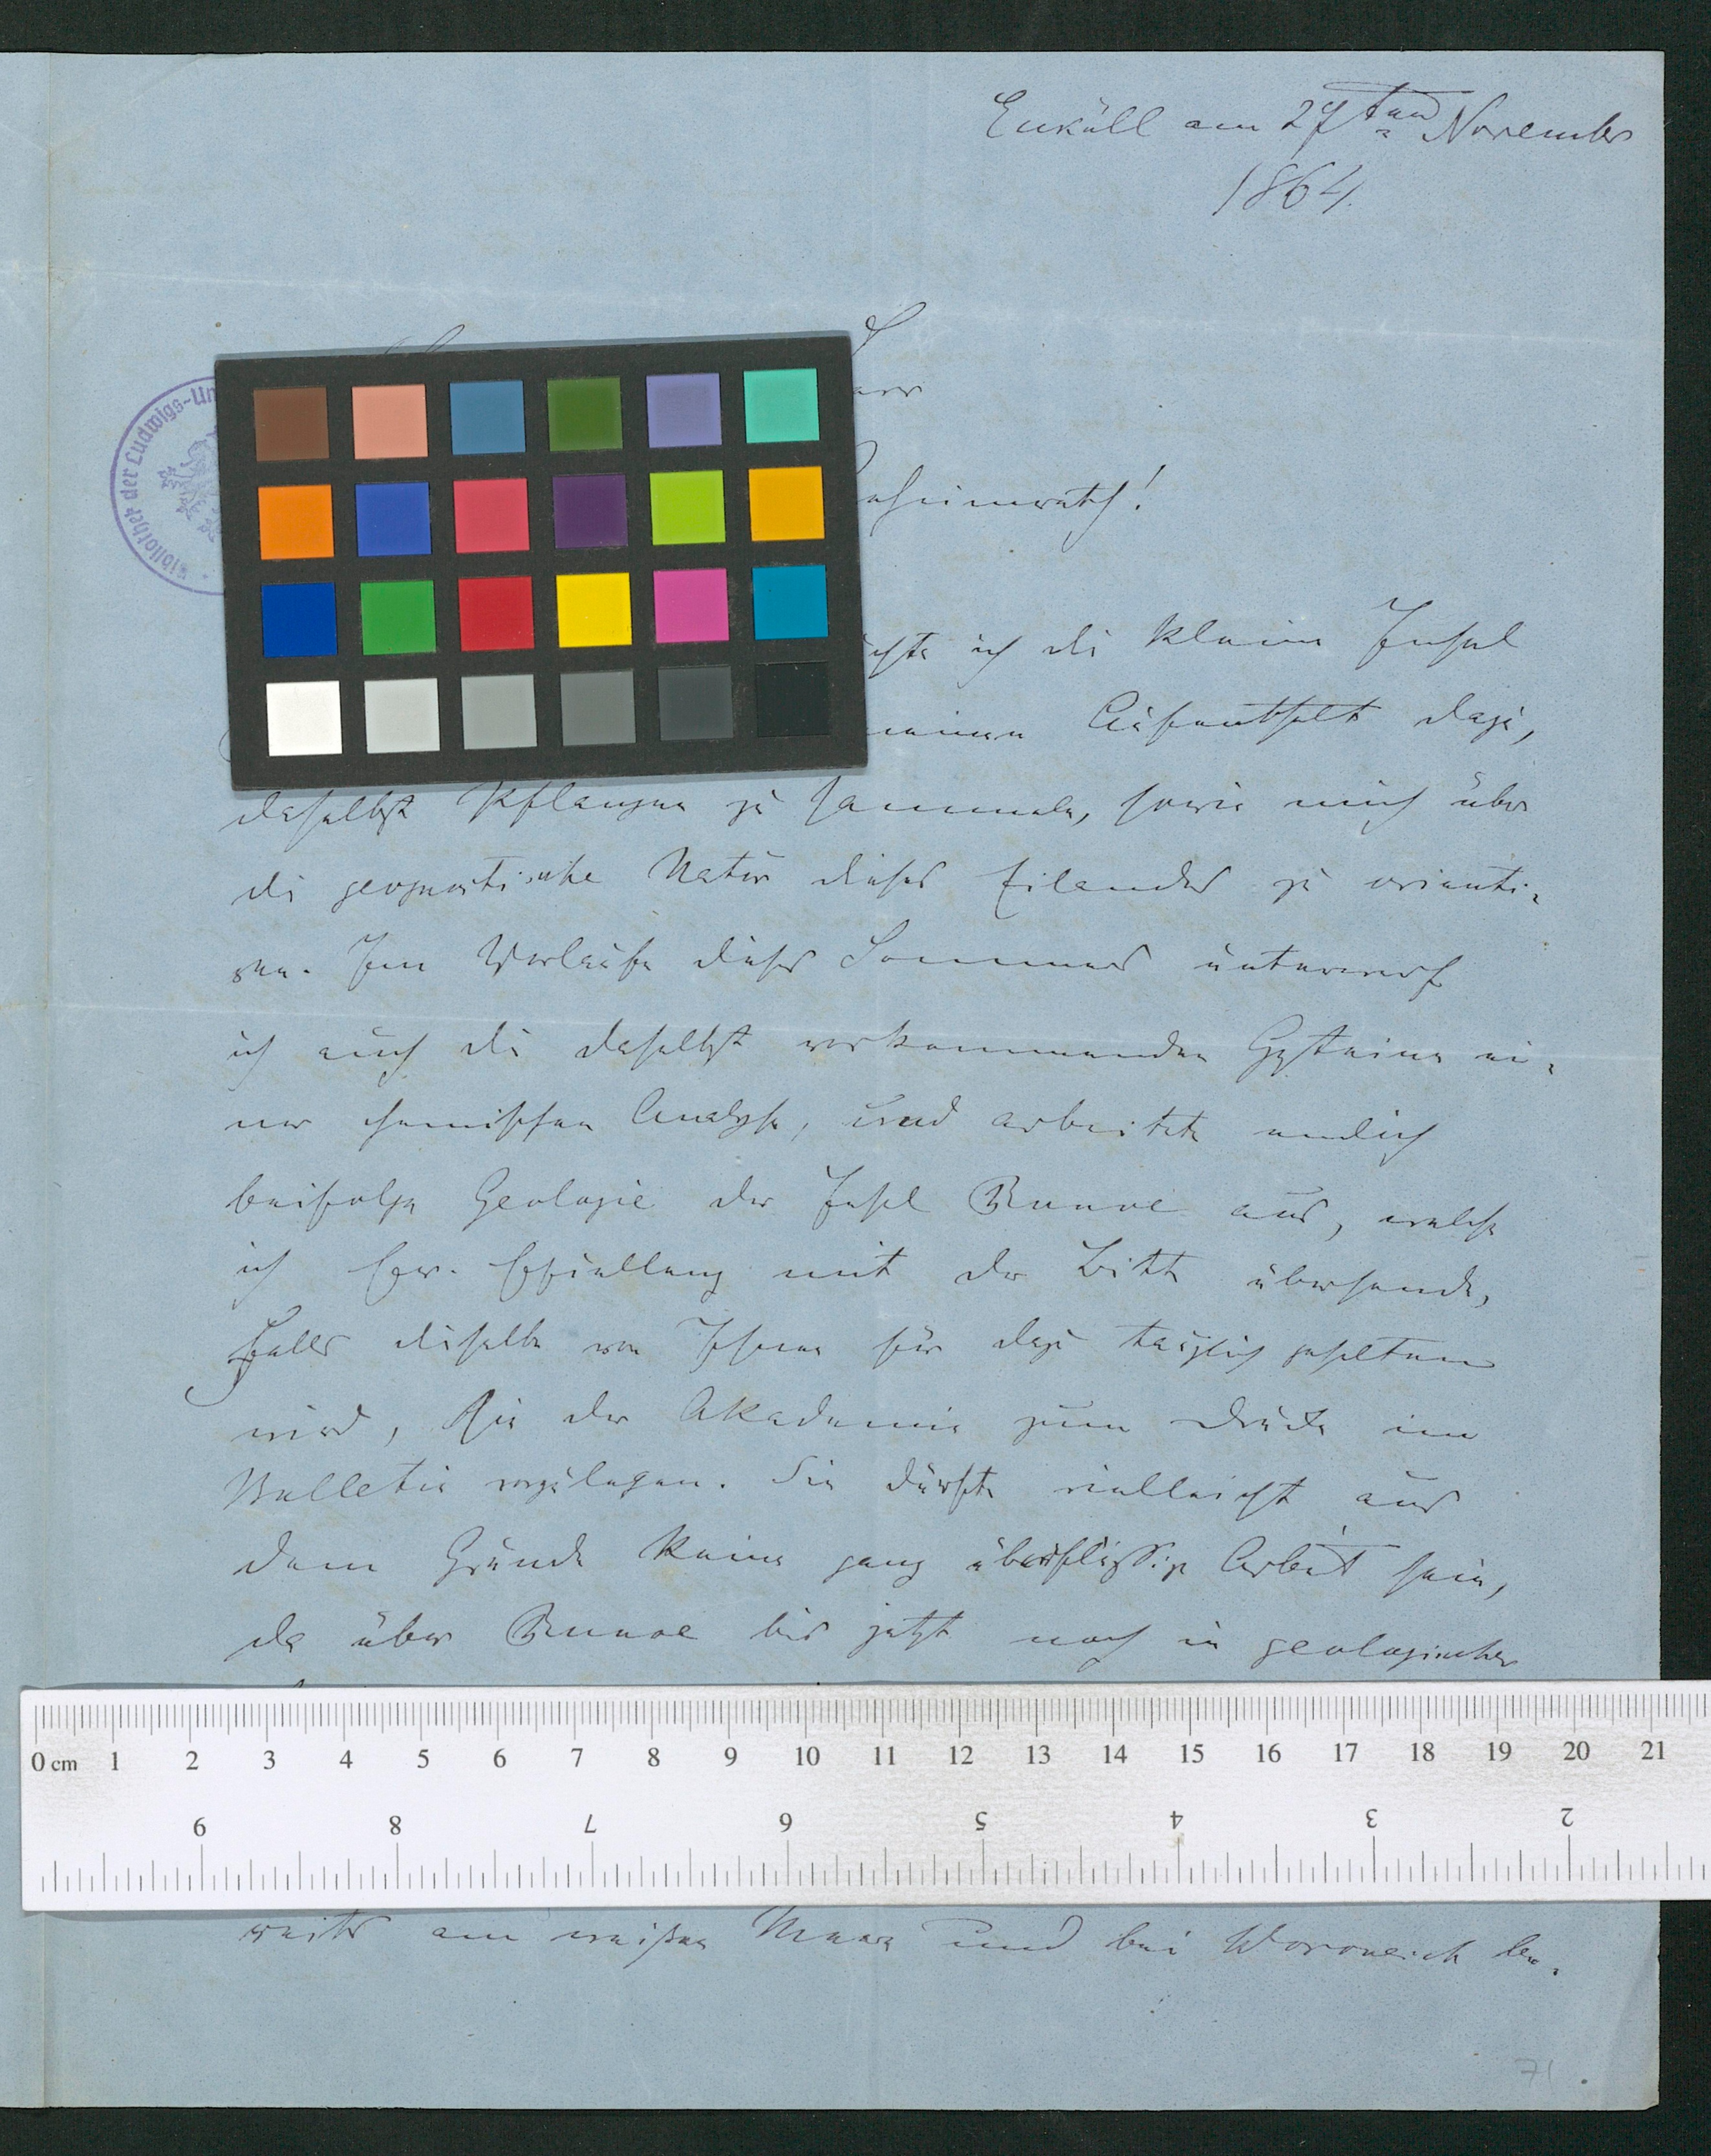 Enküll am 27ten November
1864.
Bibliothek der Ludwigs-Un
eheimrath!
ich die kleine Insel
meinen Aufenthalt dazu,
daselbst Pflanzen zu sammeln, sowie mich über
die geognostische Natur dieses Eilandes zu orienti-
ren. Im Verlaufe dieses Sommers unterwarf
ich auch die daselbst vorkommenden Gesteine ei-
ner chemischen Analyse, und arbeitete endlich
beifolge Geologie der Insel Runoe aus, welche
ich Ew. Excellenz mit der Bitte übersende,
Falls dieselbe von Ihnen für dazu tauglich gehalten
wird, sie der Akademie zum Drucke im
Bulletin vorzulegen. Sie dürfte vielleicht aus
dem Grunde keine ganz überflüssige Arbeit sein,
da über Runoe bis jetzt noch in geologischer
0 cm 1 2 3 4 5 6 7 8 9 10 11 12 13 14 15 16 17 18 19 20 21
9 8 7 6 5 4 3 2
weiter am weißen Meere und bei Woronesch be-
71